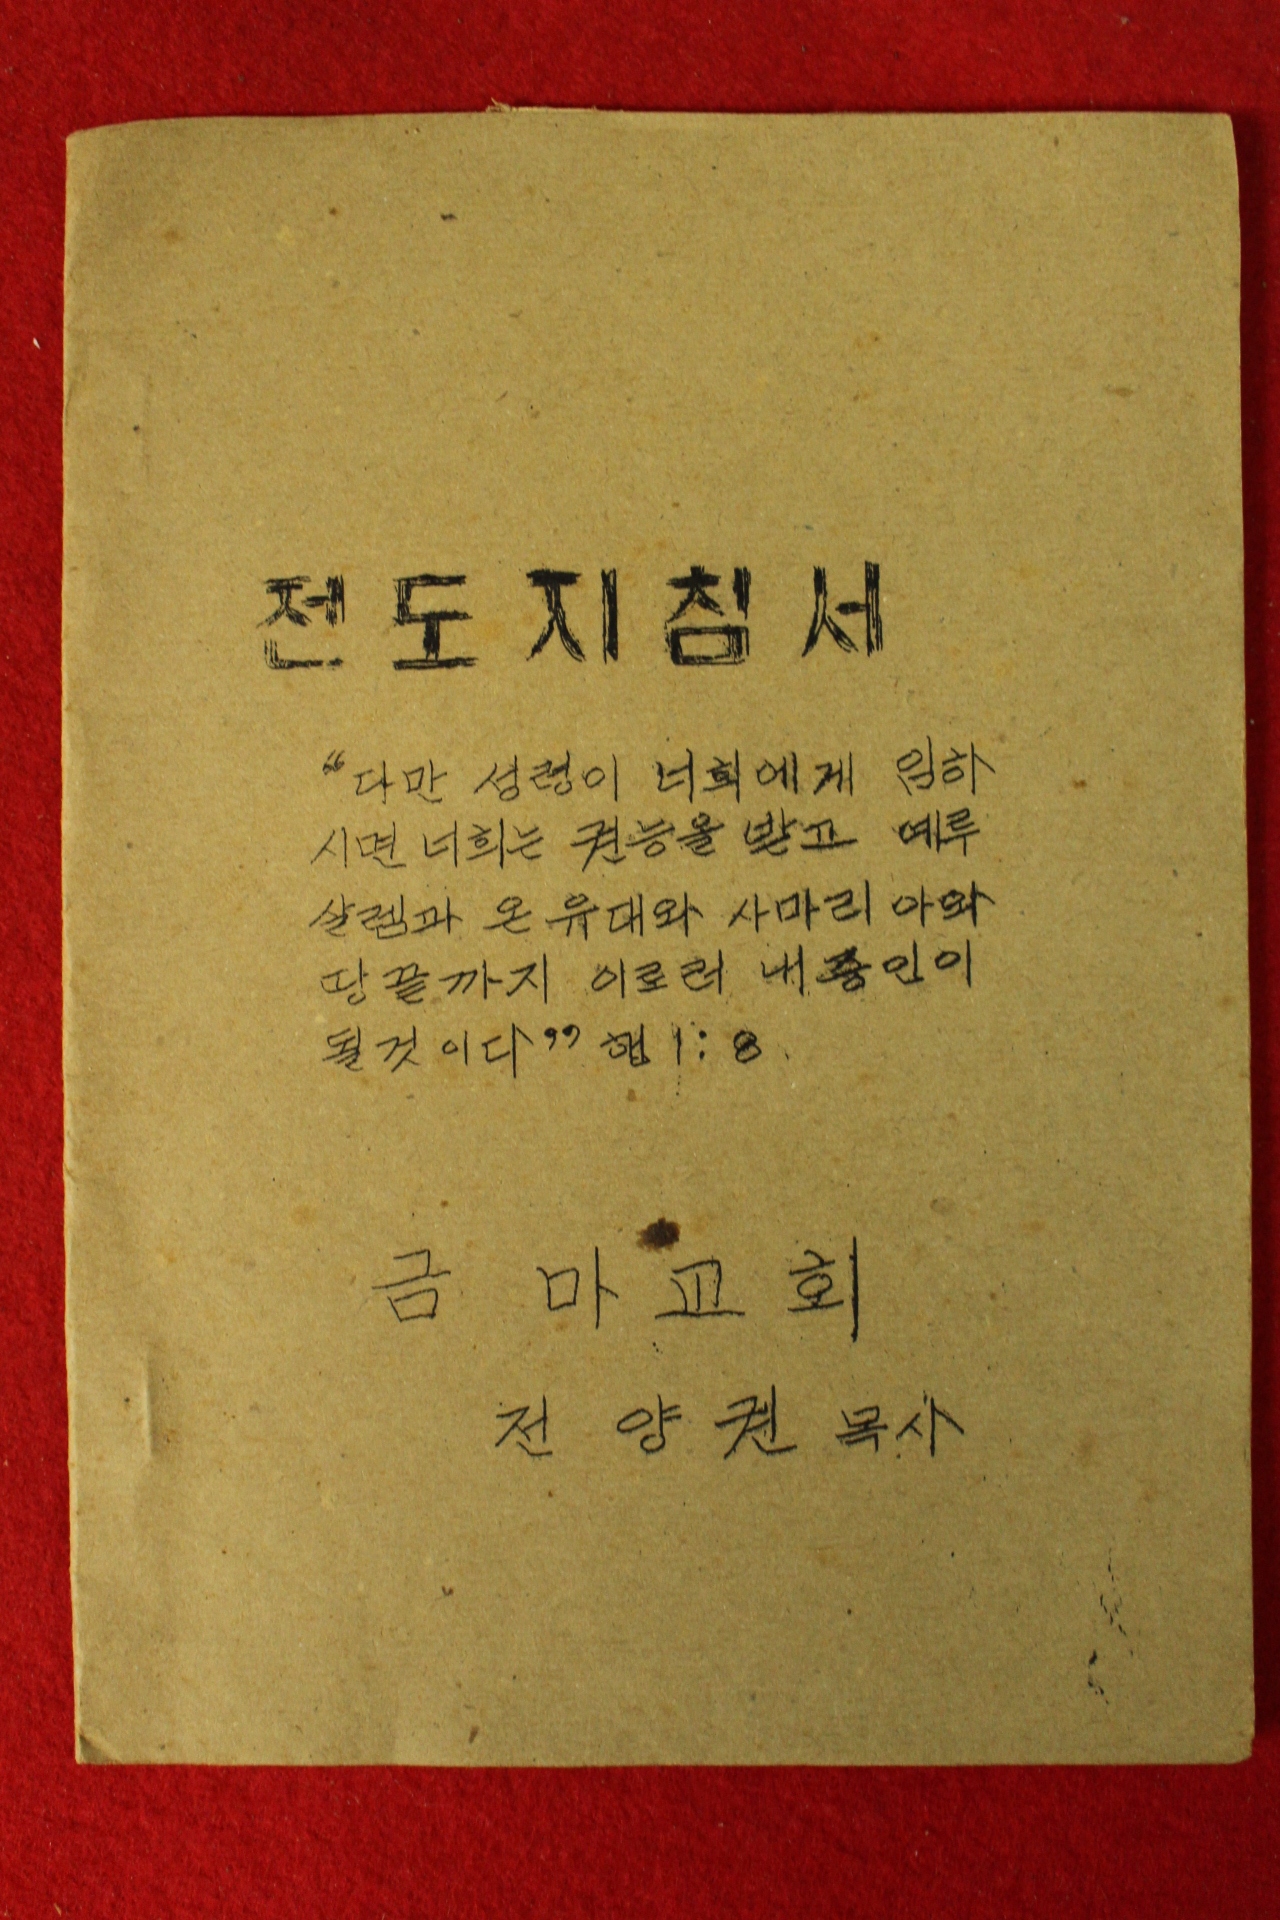 전도지침서
“다만 성령이 너희에게 임하
시면 너희는 권능을 받고 예루
살렘과 온 유대와 사마리아와
땅끝까지 이르러 내 증인이
될것이다” 행 1:8
금마교회
전양권 목사